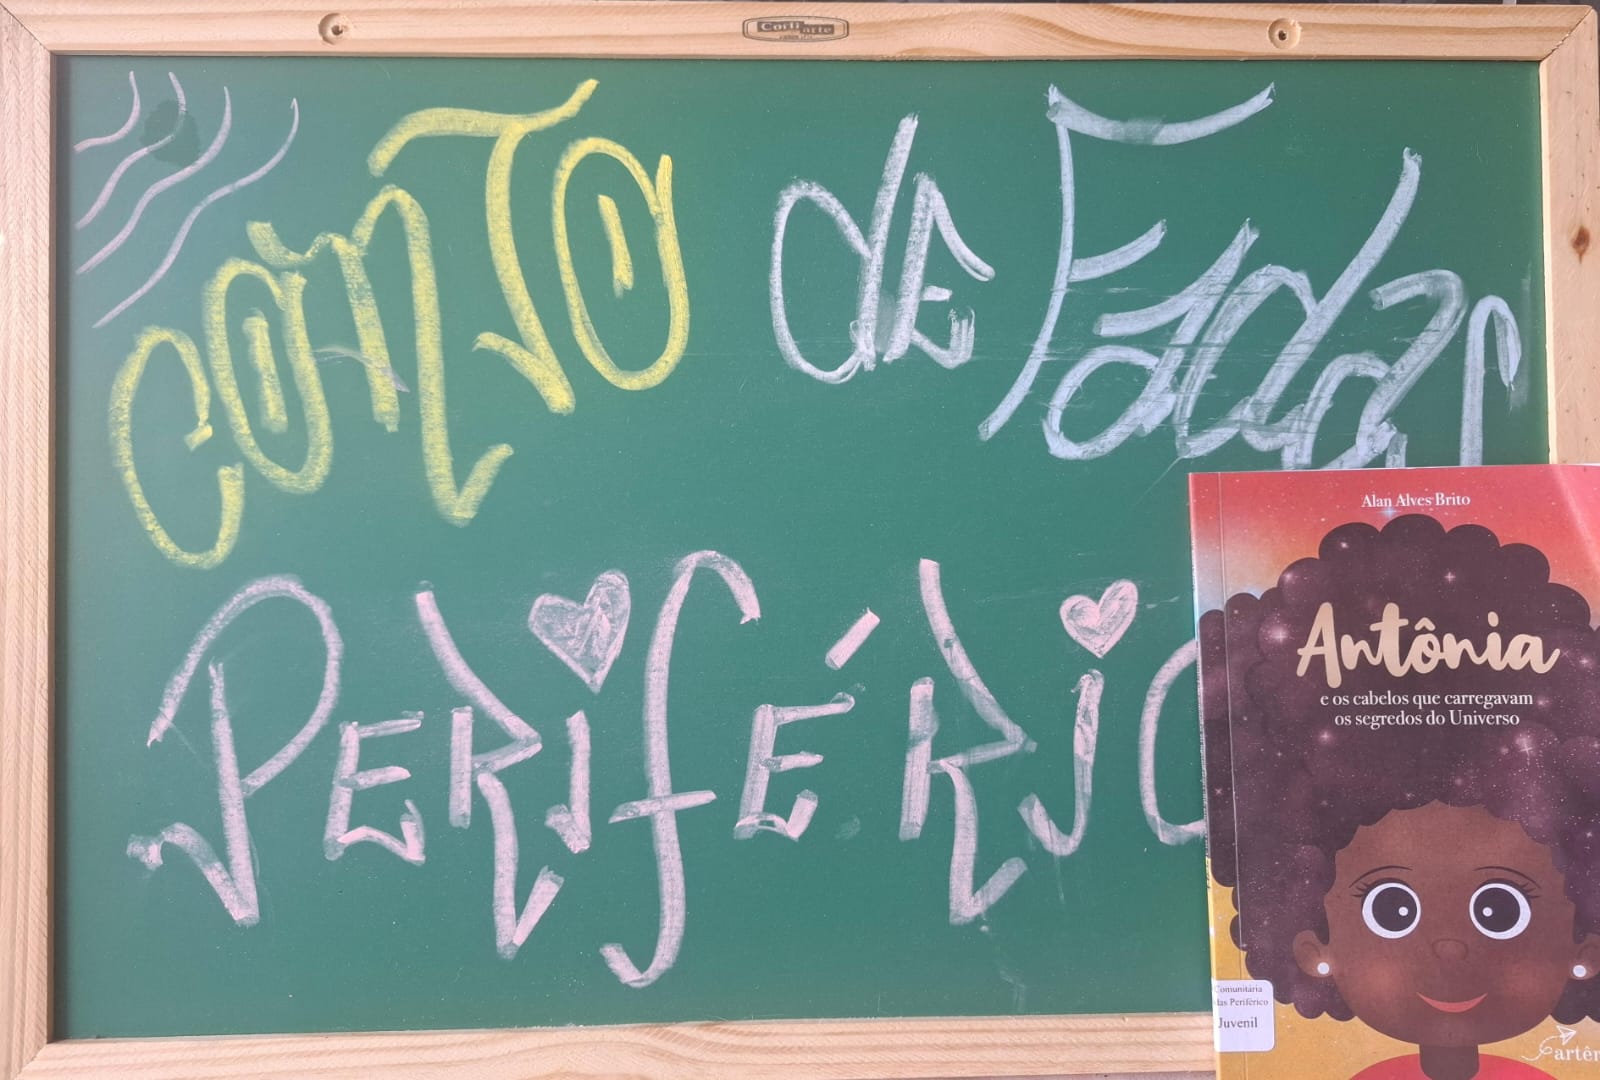 Corti arte
conTo de Fadas
PERiféRic
Alan Alves Brito
Antônia
e os cabelos que carregavam
os segredos do Universo
Comunitária
das Periférico
Juvenil
artê